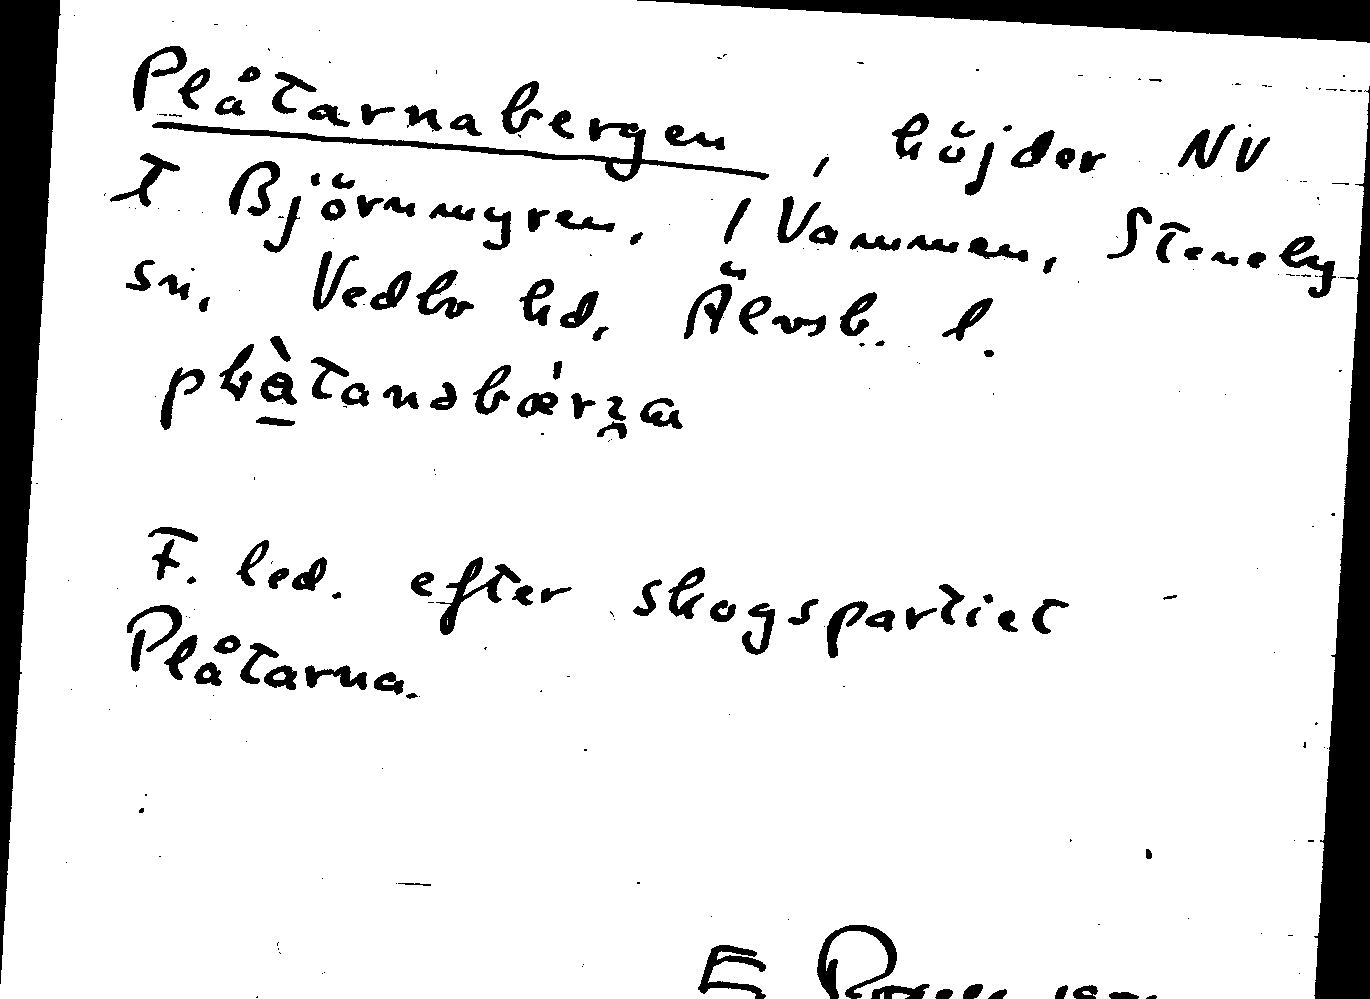 Plåtarnabergen, höjder NV
t Björnmyren, 1 Vammen, Steneby
sn, Vedbo hd, Älvsb. l.
F. led. efter skogspartiet
Plåtarna.